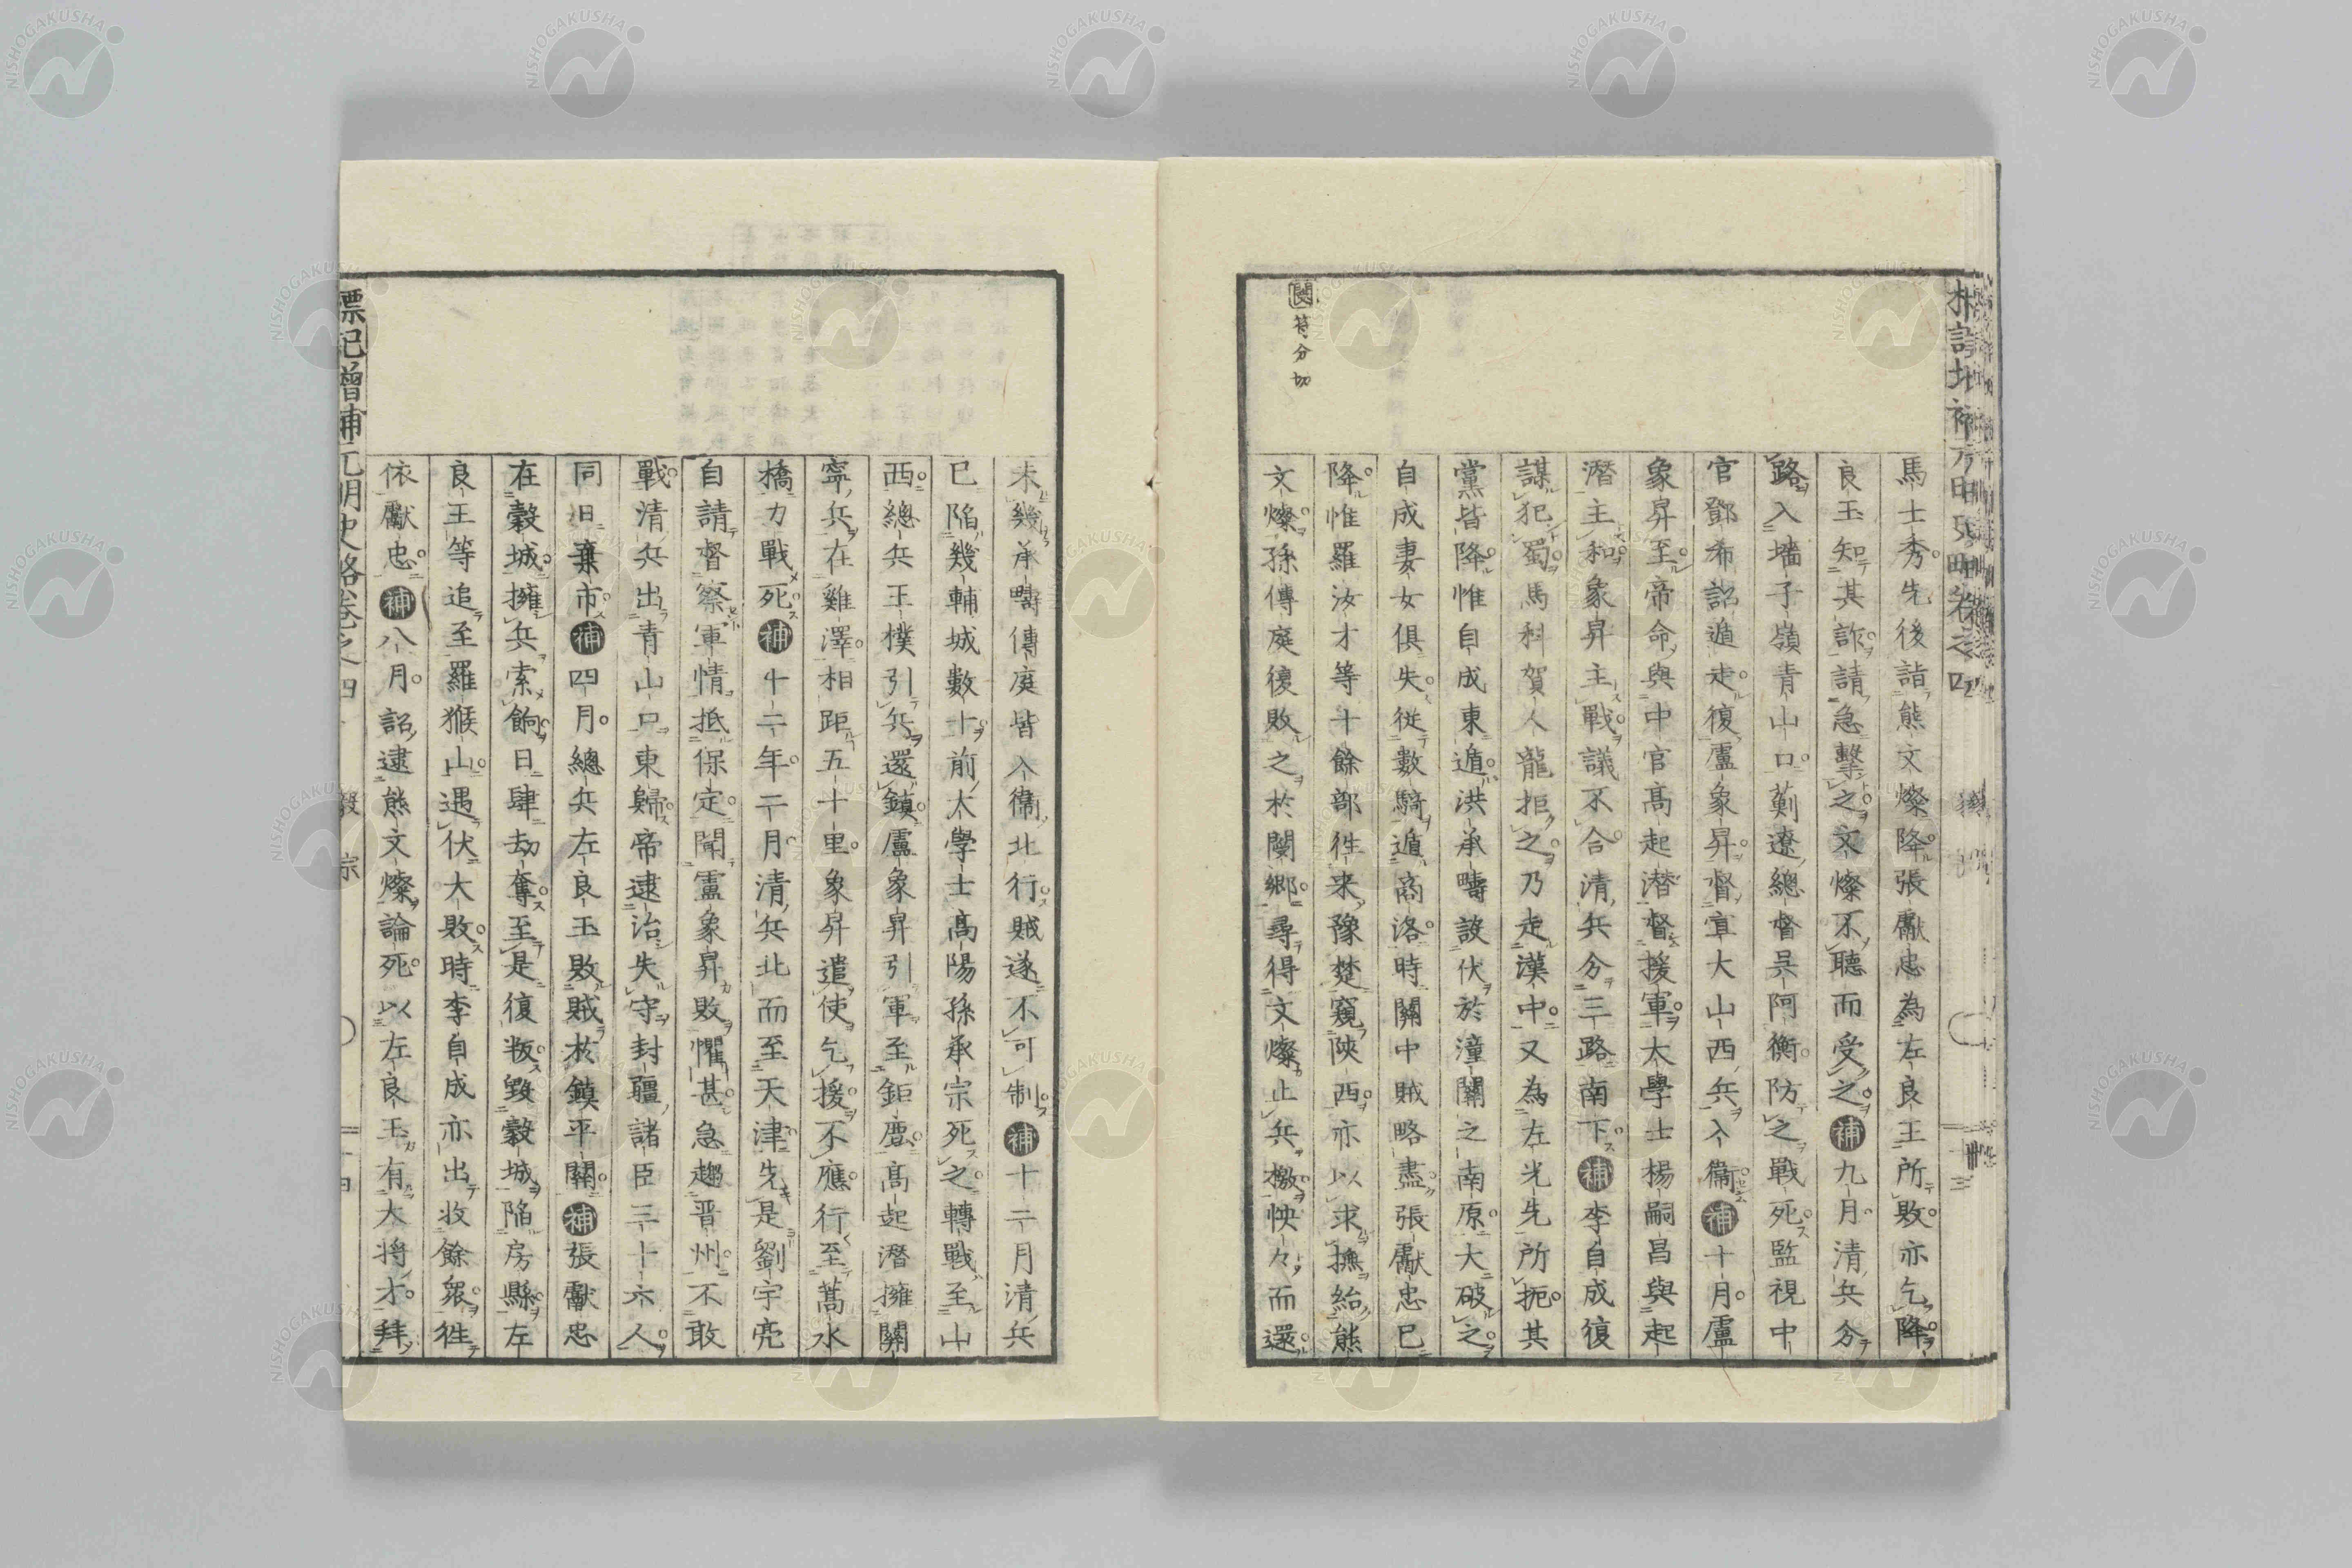 馬士秀先後詣熊文燦降張獻忠為左良玉所敗亦乞降
良玉知其詐請急擊之文燦不聽而受之補九月清兵分
路入墻子嶺青山口薊遼總督吳阿衡防之戰死監視中
官鄧希詔遁走復盧象昇督宣大山西兵入衞補十月盧
象昇至帝命與中官髙起潜督援軍大學士楊嗣昌與起
潜主和象昇主戰議不合清兵分三路南下補李自成復
謀犯蜀馬科賀人龍拒之乃走漢中又為左光先所扼其
黨皆降惟自成東遁洪承疇設伏於潼關之南原大破之
自成妻女俱失從數騎遁商洛時關中賊略盡張獻忠已
降惟羅汝才等十餘部徃来豫楚窺陝西亦以求撫紿熊
文燦孫傳庭復敗之於閿鄉尋得文燦止兵檄怏々而還
閿 苻分切
未幾承疇傳庭皆入衞北行賊遂不可制補十二月清兵
已陷畿輔城數十前大學士髙陽孫承宗死之轉戰至山
西總兵王樸引兵還鎮盧象昇引軍至鉅鹿髙起潜擁關
寧兵在雞澤相距五十里象昇遣使乞援不應行至蒿水
橋力戰死補十二年二月清兵北而至天津先是劉宇亮
自請督察軍情抵保定聞盧象昇敗懼甚急趨晋州不敢
戰清兵出青山口東歸帝逮治失守封疆諸臣三十六人
同日棄市補四月總兵左良玉敗賊於鎮平關補張獻忠
在穀城擁兵索餉日肆劫奪至是復叛毀穀城陷房縣左
良玉等追至羅猴山遇伏大敗時李自成亦出收餘衆徃
依獻忠補八月詔逮熊文燦論死以左良玉有大将才拜
標記增補元明史略卷之四 毅宗